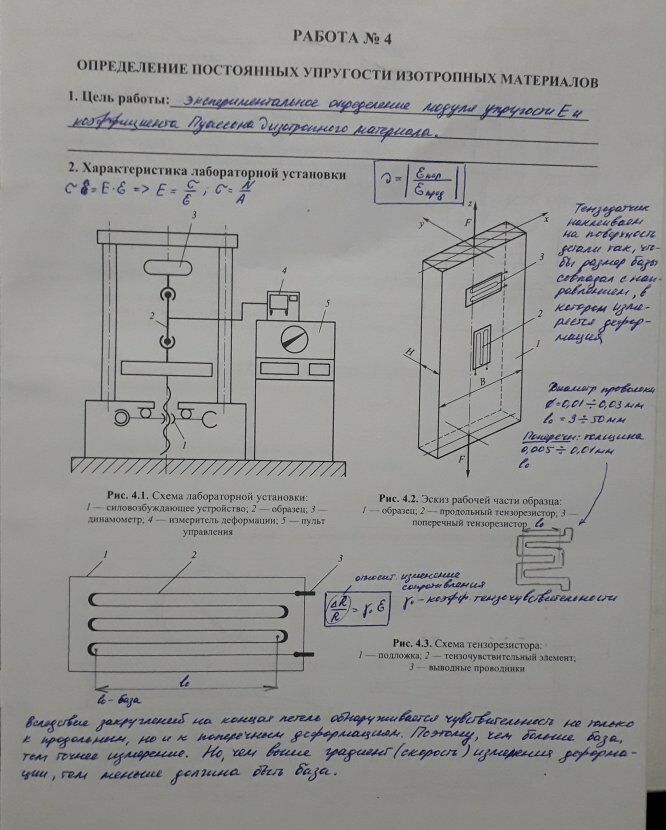 РАБОТА № 4
ОПРЕДЕЛЕНИЕ ПОСТОЯННЫХ УПРУГОСТИ ИЗОТРОПНЫХ МАТЕРИАЛОВ
1. Цель работы: экспериментальное определение модуля упругости E и
коэффициента Пуассона изотропного материала.
2. Характеристика лабораторной установки
σ = E·ε => E = σ/ε ; σ = N/A
ν = |εпоп/εпрод|
3
2
4
5
1
z
x
y
F
3
2
1
H
B
F
Тензодатчик
наклеиваем
на поверхность
детали так, что-
бы размер базы
совпадал с нап-
равлением, в
котором изме-
ряется дефор-
мация
Диаметр проволоки
∅=0,01÷0,03мм
l₀ = 3÷50мм
Поперечн: толщина
0,005÷0,01мм
l₀
Рис. 4.1. Схема лабораторной установки:
1 — силовозбуждающее устройство; 2 — образец; 3 —
динамометр; 4 — измеритель деформации; 5 — пульт
управления
Рис. 4.2. Эскиз рабочей части образца:
1 — образец; 2 — продольный тензорезистор; 3 —
поперечный тензорезистор
l₀
1
2
3
l₀
l₀ - база
относит. изменение
сопротивления
ΔR/R = γ₀ ε
γ₀ - коэфф. тензочувствительности
Рис. 4.3. Схема тензорезистора:
1 — подложка; 2 — тензочувствительный элемент;
3 — выводные проводники
Вследствие закруглений на концах петель обнаруживается чувствительность не только
к продольным, но и к поперечным деформациям. Поэтому, чем больше база,
тем точнее измерение. Но, чем выше градиент (скорость) измерения деформа-
ции, тем меньше должна быть база.